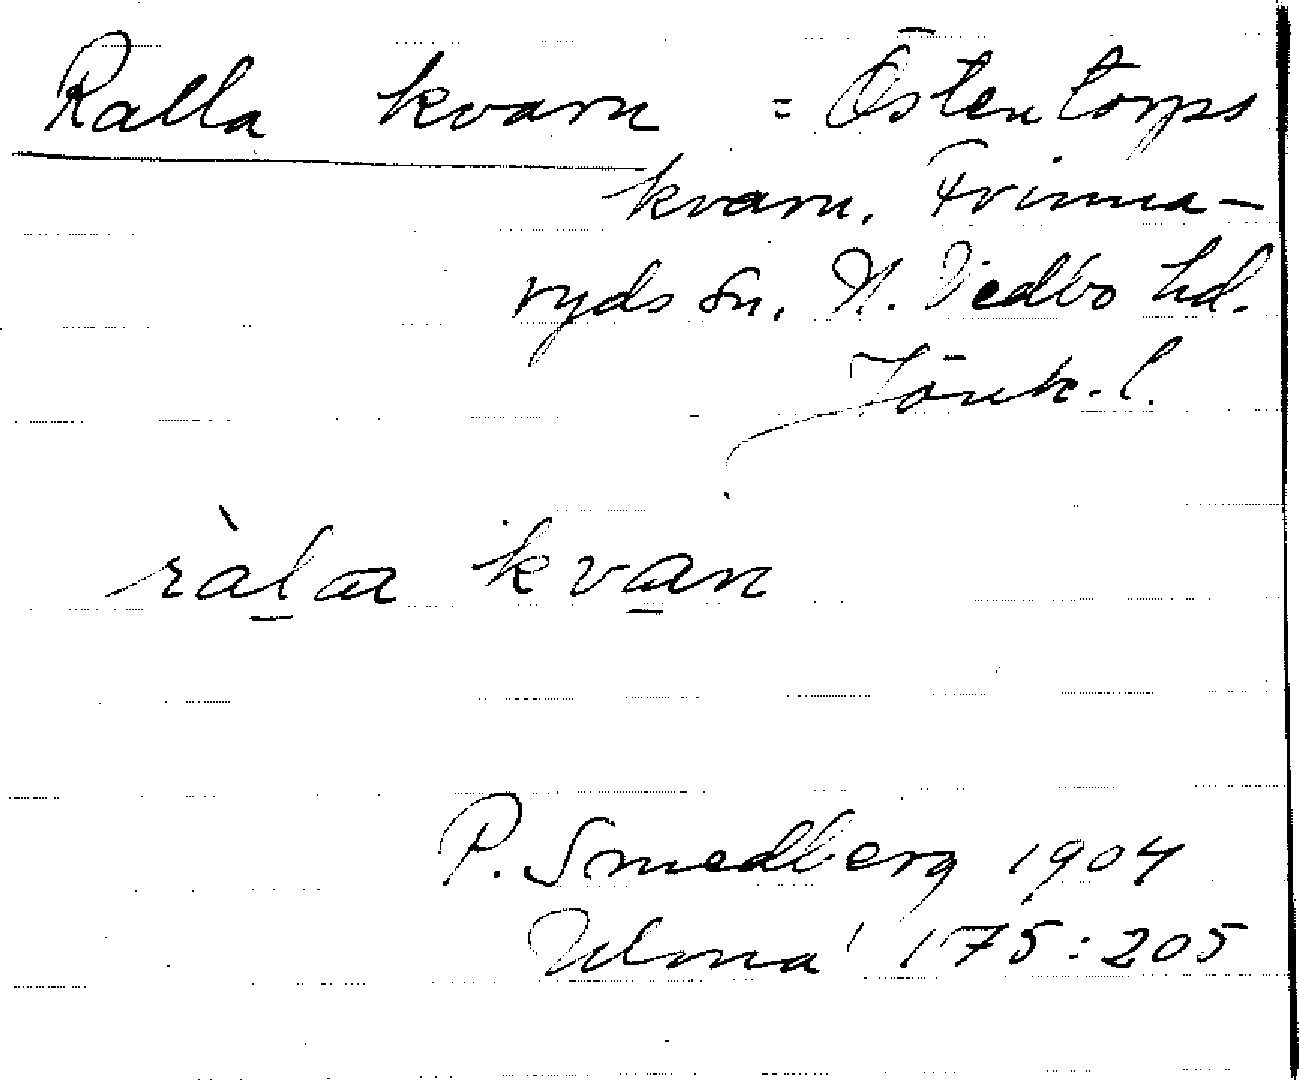 Ralla kvarn = Östentorps
kvarn, Frinna-
ryds sn, N. Vedbo hd.
Jönk. l.
ràla kvan
P. Smedberg 1904
Ulma 175:205